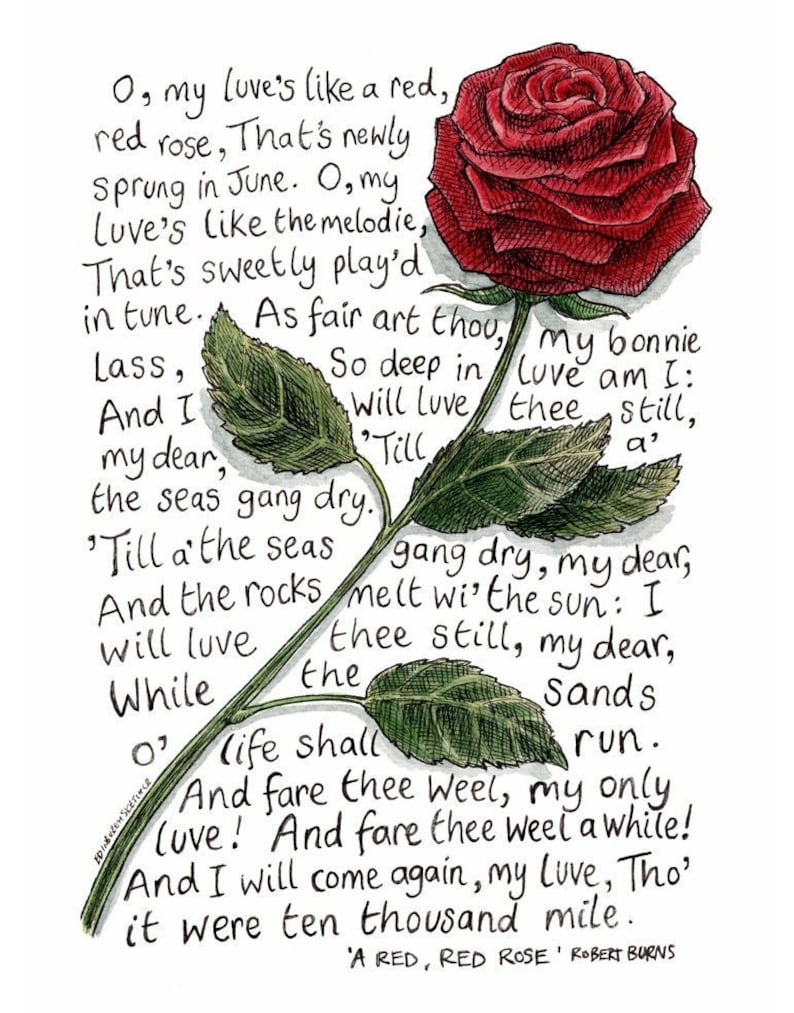 O, my luve's like a red,
red rose, That's newly
sprung in June. O, my
luve's like the melodie,
That's sweetly play'd
in tune. As fair art thou, my bonnie
lass, So deep in luve am I:
And I will luve thee still,
my dear, 'Till a'
the seas gang dry.
'Till a' the seas gang dry, my dear,
And the rocks melt wi' the sun: I
will luve thee still, my dear,
While the sands
o' life shall run.
And fare thee weel, my only
luve! And fare thee weel a while!
And I will come again, my luve, Tho'
it were ten thousand mile.
'A RED, RED ROSE' ROBERT BURNS
EDINBURGH SKETCHER